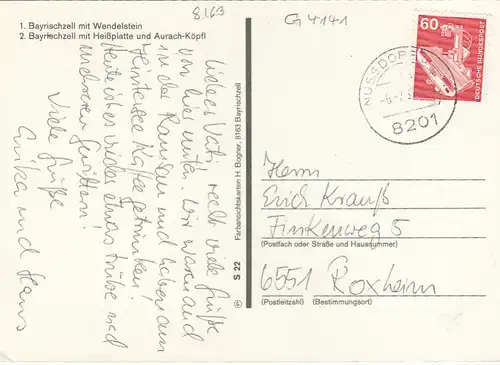 8163
G 4141
1. Bayrischzell mit Wendelstein
2. Bayrischzell mit Heißplatte und Aurach-Köpfl
Lieber Vati, recht viele Grüße
von hier unten. Wir waren auch
in der Ramsau und haben am
Hintersee Kaffee getrunken!
Heute ist es wieder etwas trübe und
mehreren
Viele Grüße
Anika und Hans
Farbansichtskarten H. Bogner, 8163 Bayrischzell
© S 22
60
DEUTSCHE BUNDESPOST
NUSSDORF
8201
Herrn
Erich Krauß
Finkenweg 5
(Postfach oder Straße und Hausnummer)
6551 Roxheim
(Postleitzahl) (Bestimmungsort)